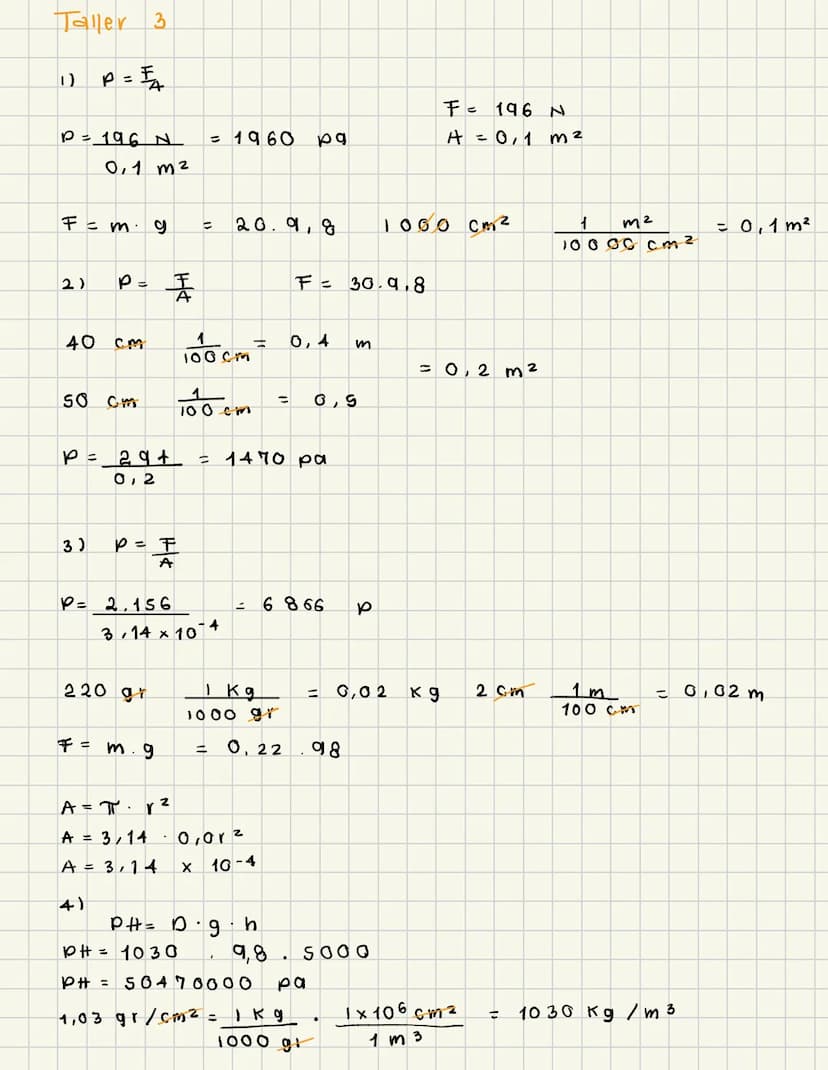 Taller 3
1) P = F/A
F = 196 N
P = 196 N / 0,1 m² = 1960 pa A = 0,1 m²
F = m · g = 20 . 9,8 1000 cm² 1 m² / 10000 cm² = 0,1 m²
2) P = F/A F = 30 . 9,8
40 cm 1 / 100 cm = 0,4 m
= 0,2 m²
50 cm 1 / 100 cm = 0,5
P = 294 / 0,2 = 1470 pa
3) P = F/A
P = 2.156 / 3,14 × 10⁻⁴ = 6866 P
220 gr 1 Kg / 1000 gr = 0,02 Kg 2 cm 1 m / 100 cm = 0,02 m
F = m . g = 0,22 . 98
A = π · r²
A = 3,14 · 0,0r²
A = 3,14 x 10⁻⁴
4)
PH = D · g · h
PH = 1030 . 9,8 . 5000
PH = 50470000 pa
1,03 gr/cm² = 1 Kg / 1000 gr . 1×10⁶ cm² / 1 m³ = 1030 Kg/m³